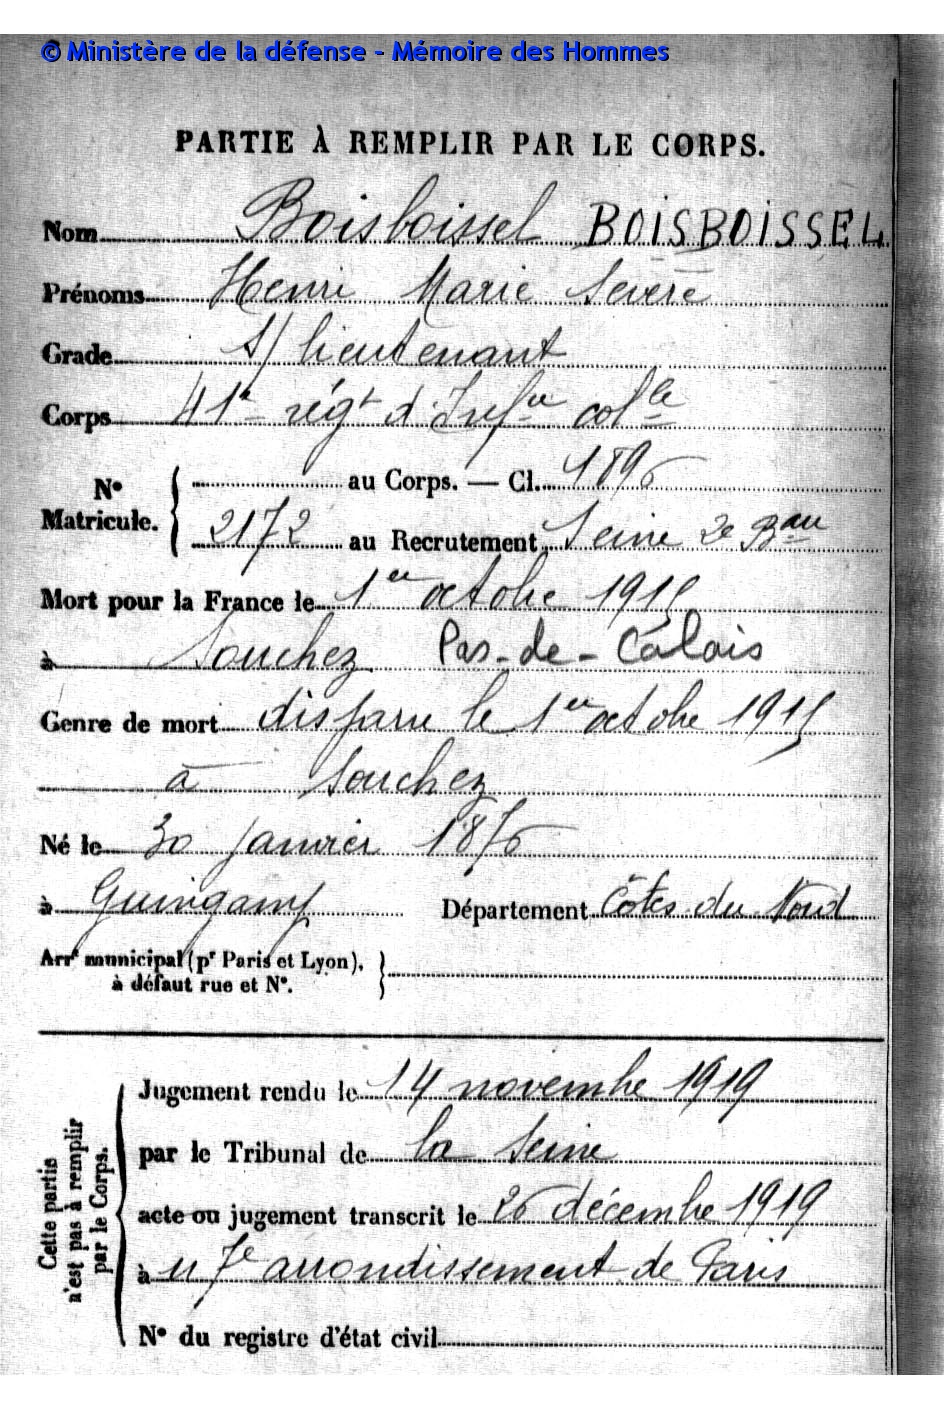 © Ministère de la défense - Mémoire des Hommes
PARTIE À REMPLIR PAR LE CORPS.
Nom Boisboissel BOISBOISSEL
Prénoms Henri Marie Severe
Grade S/lieutenant
Corps 41e régt d'Infie colle
No Matricule. { au Corps. — Cl. 1896
2172 au Recrutement Seine 2e Bau
Mort pour la France le 1er octobre 1915
à Souchez Pas-de-Calais
Genre de mort disparu le 1er octobre 1915
à Souchez
Né le 30 janvier 1876
à Guingamp Département Côtes du Nord
Arrt municipal (pr Paris et Lyon),
à défaut rue et No.
Cette partie n'est pas à remplir par le Corps.
Jugement rendu le 14 novembre 1919
par le Tribunal de la Seine
acte ou jugement transcrit le 26 décembre 1919
à 7e arrondissement de Paris
No du registre d'état civil